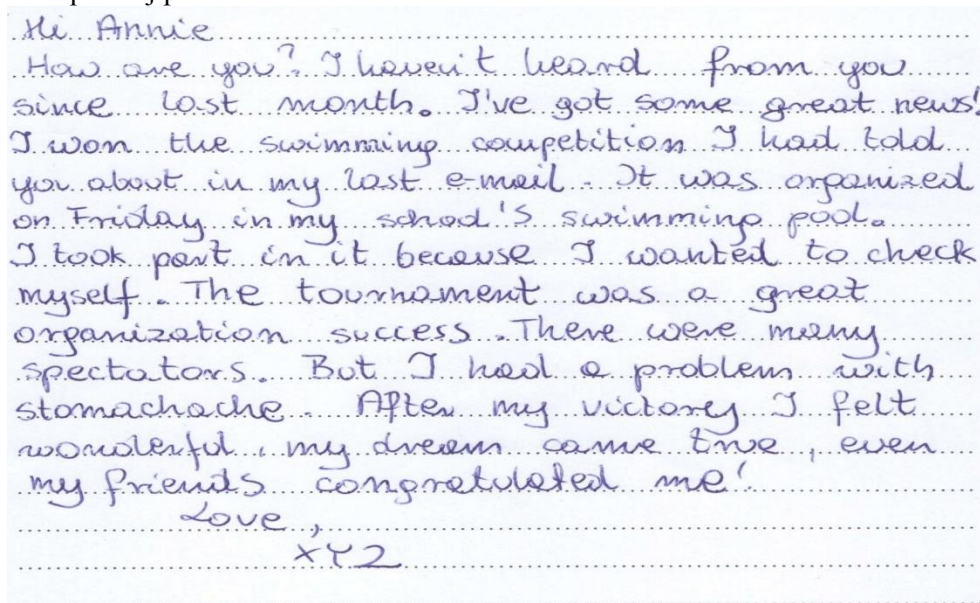 Hi Annie
How are you? I haven't heard from you
since last month. I've got some great news!
I won the swimming competition I had told
you about in my last e-mail. It was organized
on Friday in my school's swimming pool.
I took part in it because I wanted to check
myself. The tournament was a great
organization success. There were many
spectators. But I had a problem with
stomachache. After my victory I felt
wonderful, my dream came true, even
my friends congratulated me!
Love,
XYZ